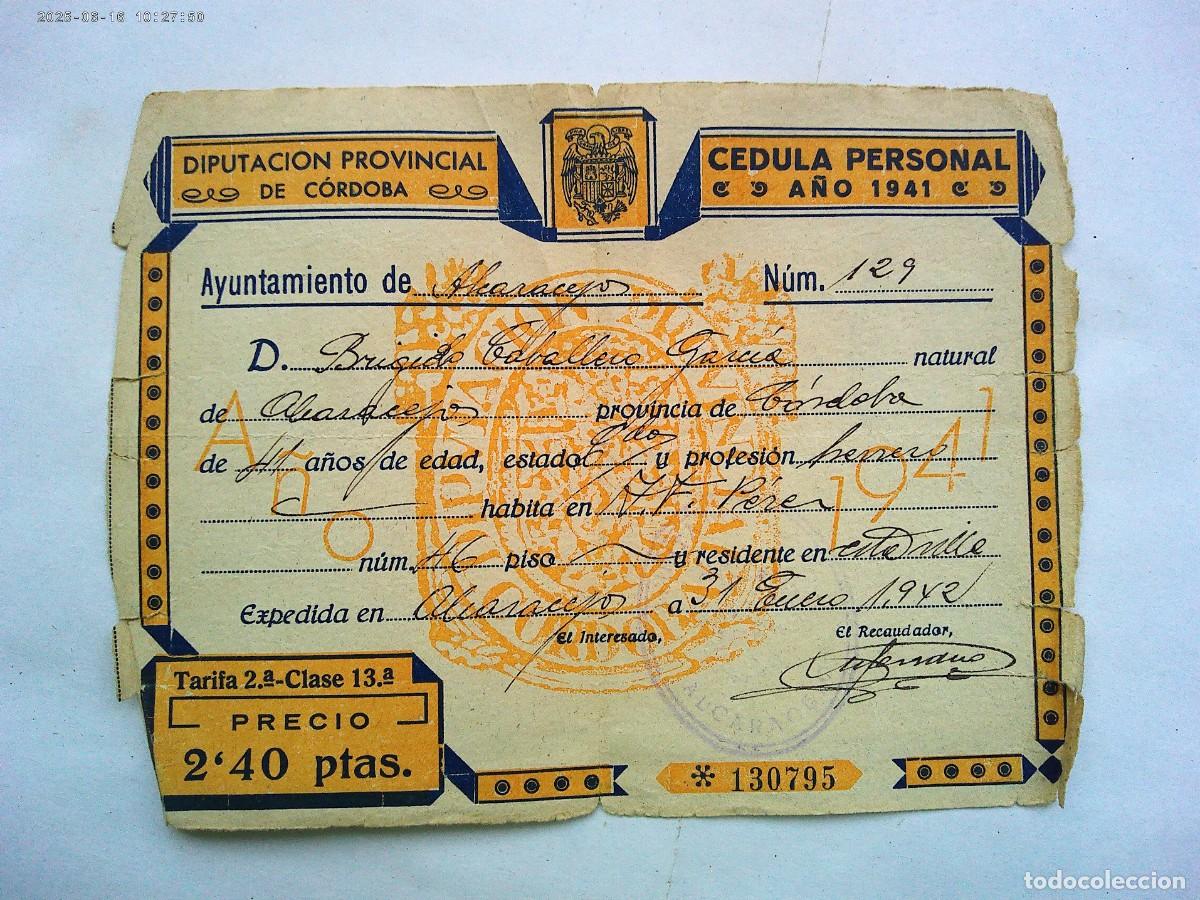 2025-08-16 10:27:50
DIPUTACION PROVINCIAL
DE CÓRDOBA
CEDULA PERSONAL
AÑO 1941
Ayuntamiento de Alcaracejos Núm. 129
D. Brigido Caballero García natural
de Alcaracejos provincia de Córdoba
de años de edad, estado y profesión herrero
habita en A. F. Pérez
núm. 46 piso y residente en esta villa
Expedida en Alcaracejos a 31 Enero 1942
El Interesado, El Recaudador,
Año 1941
ALCARACEJ
Tarifa 2.ª-Clase 13.ª
PRECIO
2'40 ptas.
* 130795
todocoleccion